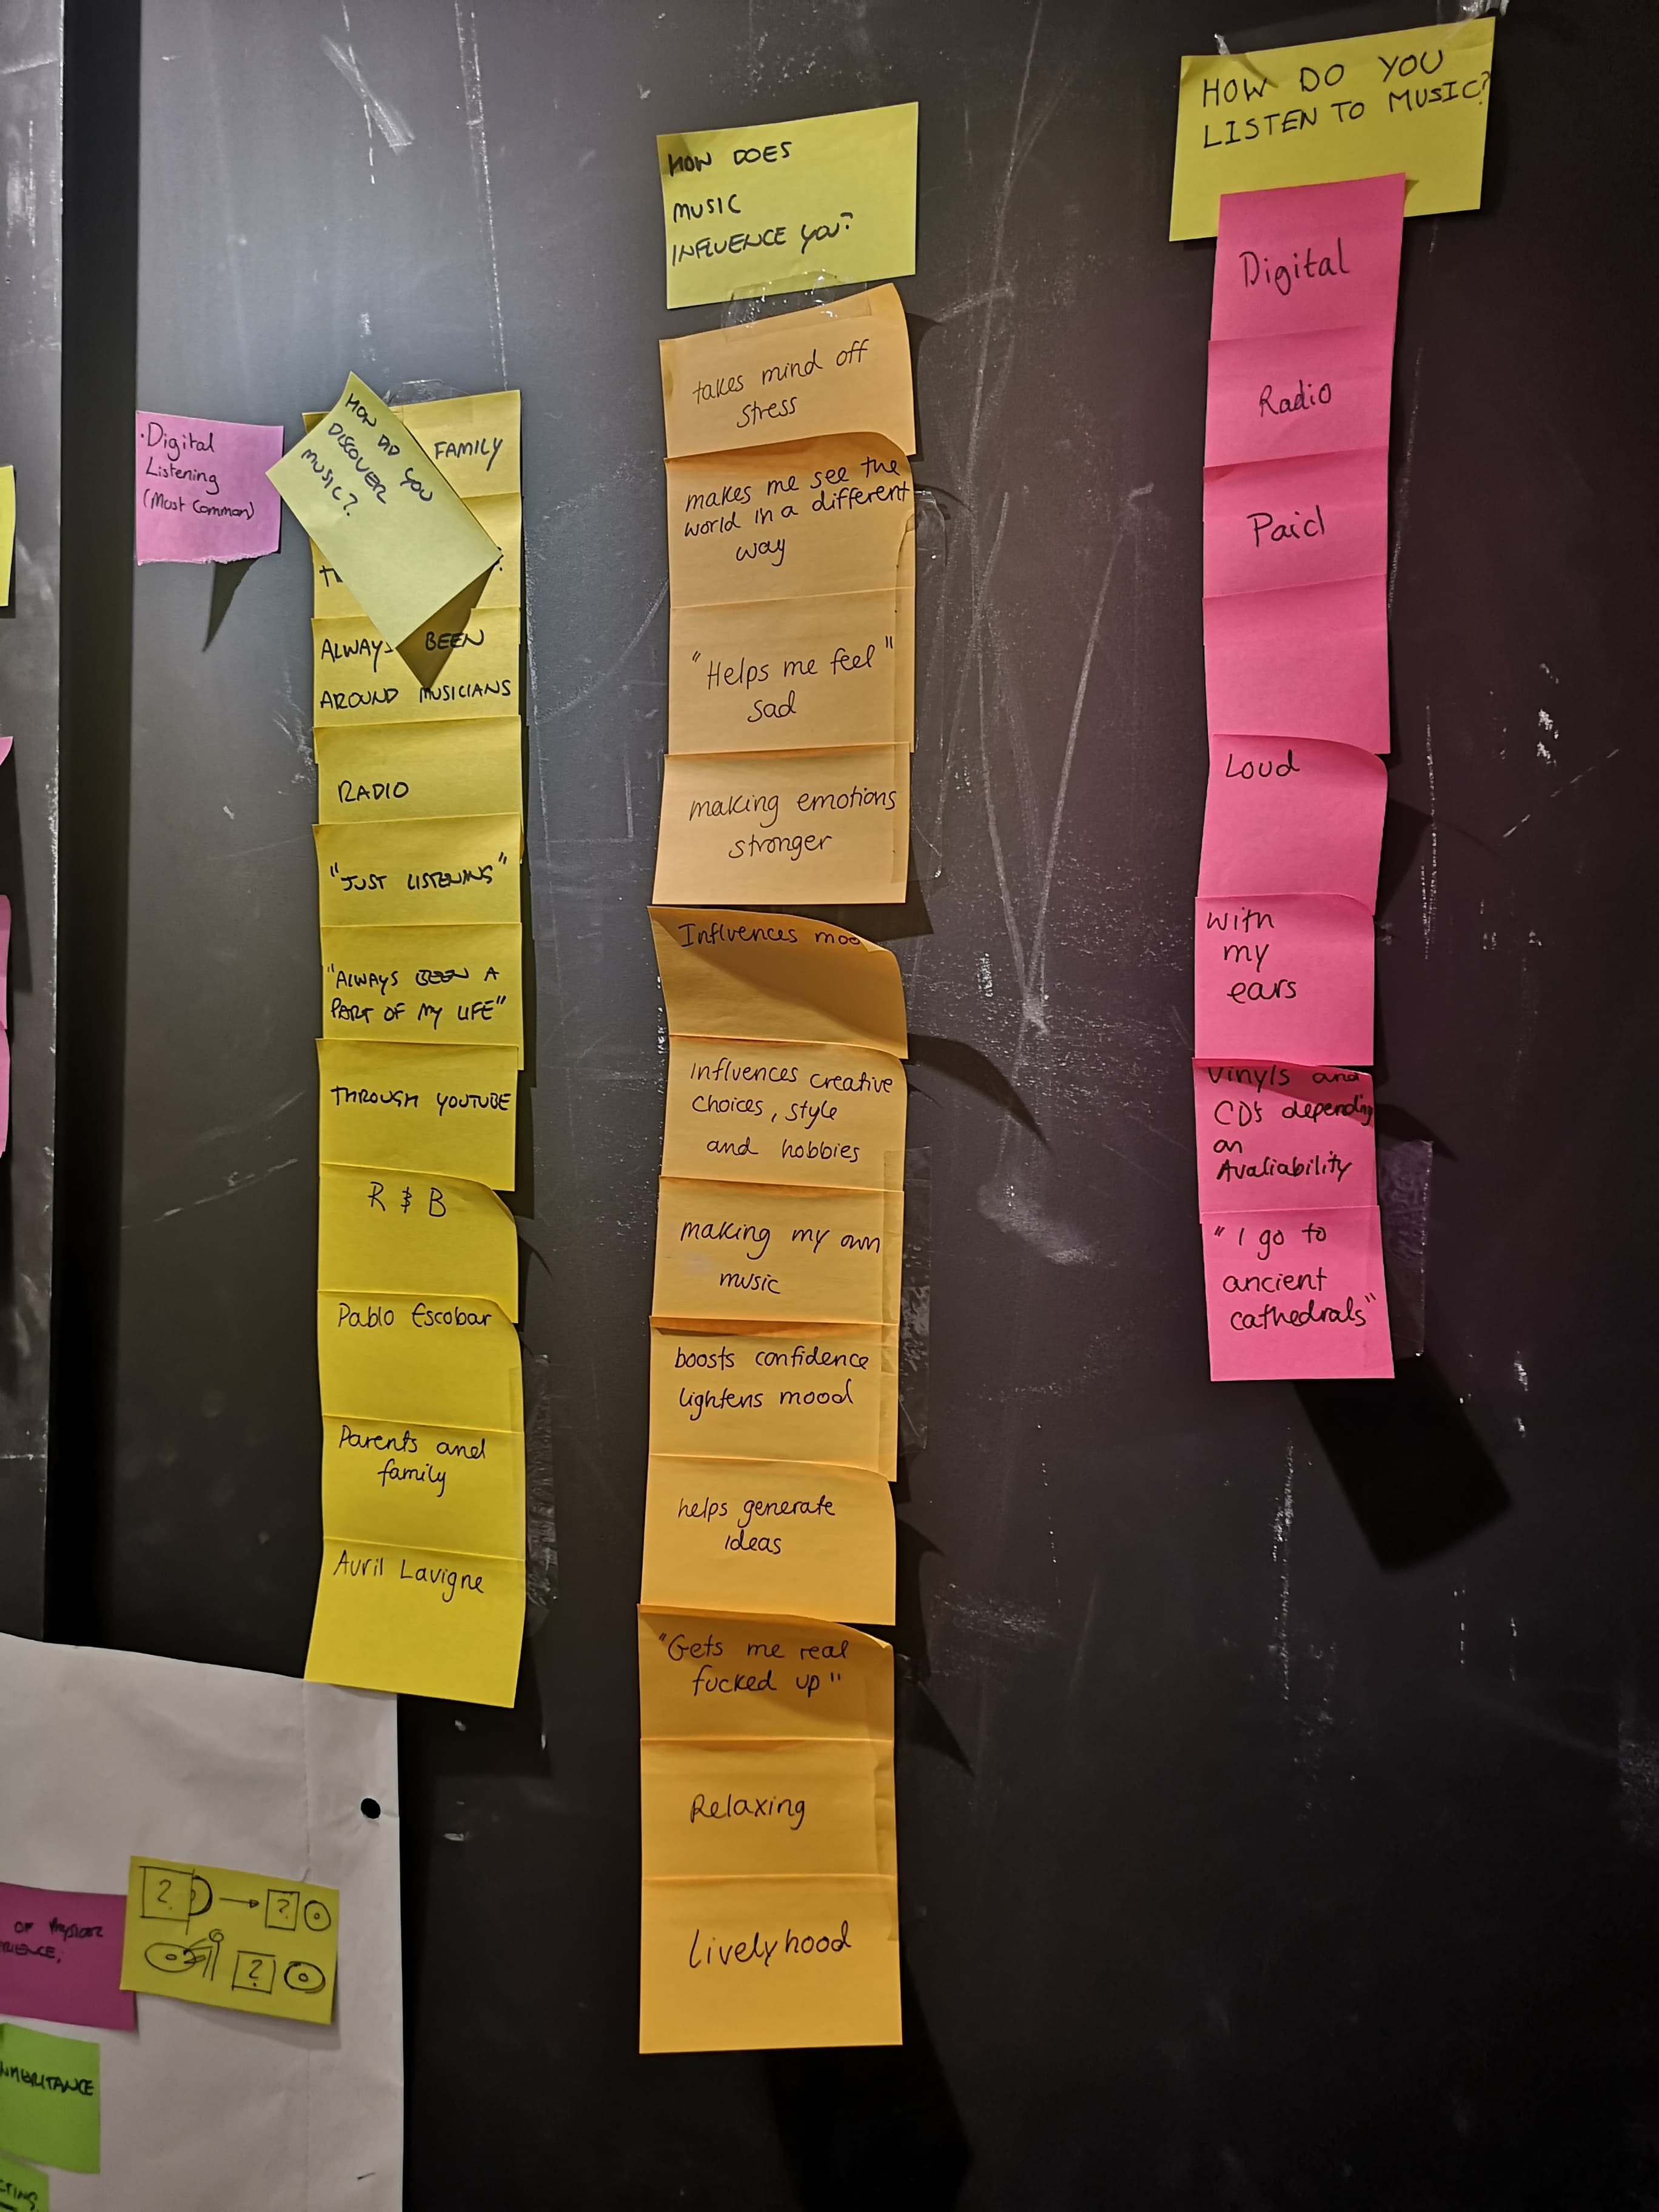 ·Digital
Listening
(Most Common)
HOW DID YOU
DISCOVER
MUSIC?
FAMILY
ALWAYS BEEN
AROUND MUSICIANS
RADIO
"JUST LISTENING"
"ALWAYS BEEN A
PART OF MY LIFE"
THROUGH YOUTUBE
R & B
Pablo Escobar
Parents and
family
Avril Lavigne
HOW DOES
MUSIC
INFLUENCE YOU?
takes mind off
stress
makes me see the
world in a different
way
"Helps me feel"
sad
making emotions
stronger
Influences moo
influences creative
choices, style
and hobbies
making my own
music
boosts confidence
lightens mood
helps generate
ideas
"Gets me real
fucked up"
Relaxing
Livelyhood
HOW DO YOU
LISTEN TO MUSIC?
Digital
Radio
Paid
Loud
with
my
ears
Vinyls and
CD's depending
on
Avaliability
"I go to
ancient
cathedrals"
?
?
?
OF